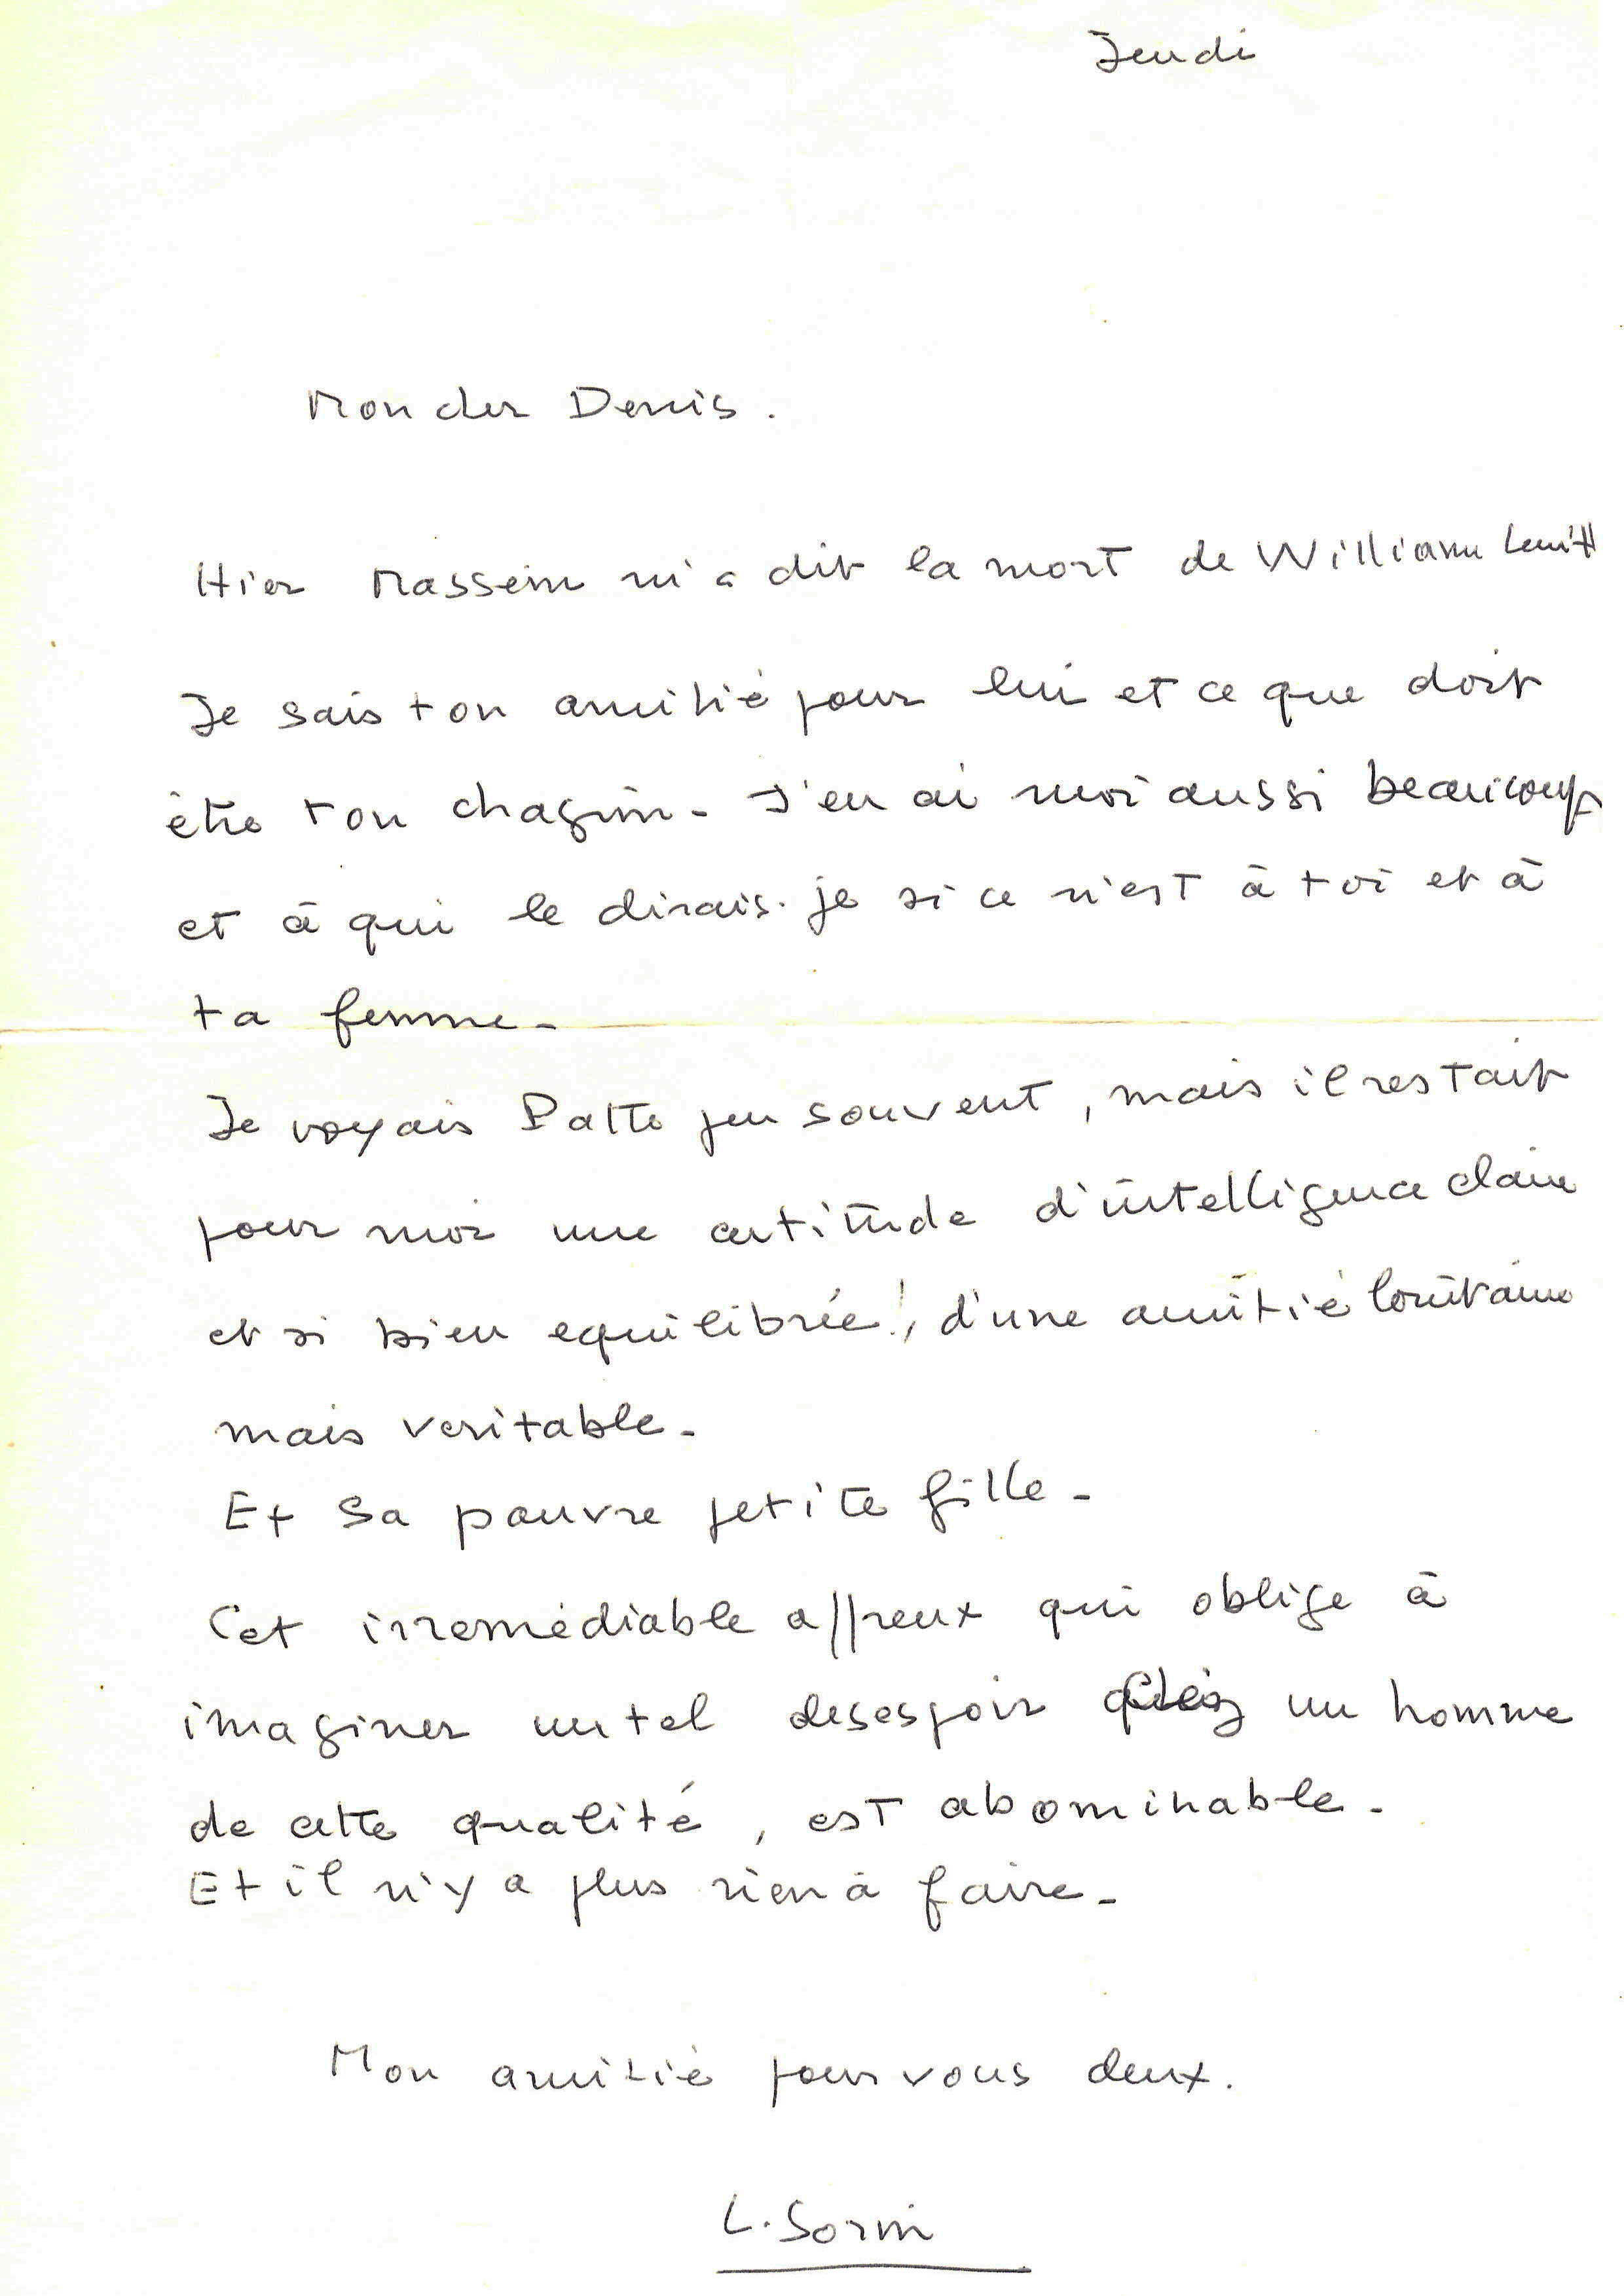 Jeudi
Mon cher Denis.
Hier Massein m'a dit la mort de William
Je sais ton amitié pour lui et ce que doit
être ton chagrin - J'en ai moi aussi beaucoup
et à qui le dirais-je si ce n'est à toi et à
ta femme -
Je voyais Patte peu souvent, mais il restait
pour moi une certitude d'intelligence claire
et si bien equilibrée!, d'une amitié lointaine
mais veritable -
Et sa pauvre petite fille -
Cet irremédiable affreux qui oblige à
imaginer un tel desespoir chez un homme
de cette qualité, est abominable -
Et il n'y a plus rien à faire -
Mon amitié pour vous deux.
L. Sorin